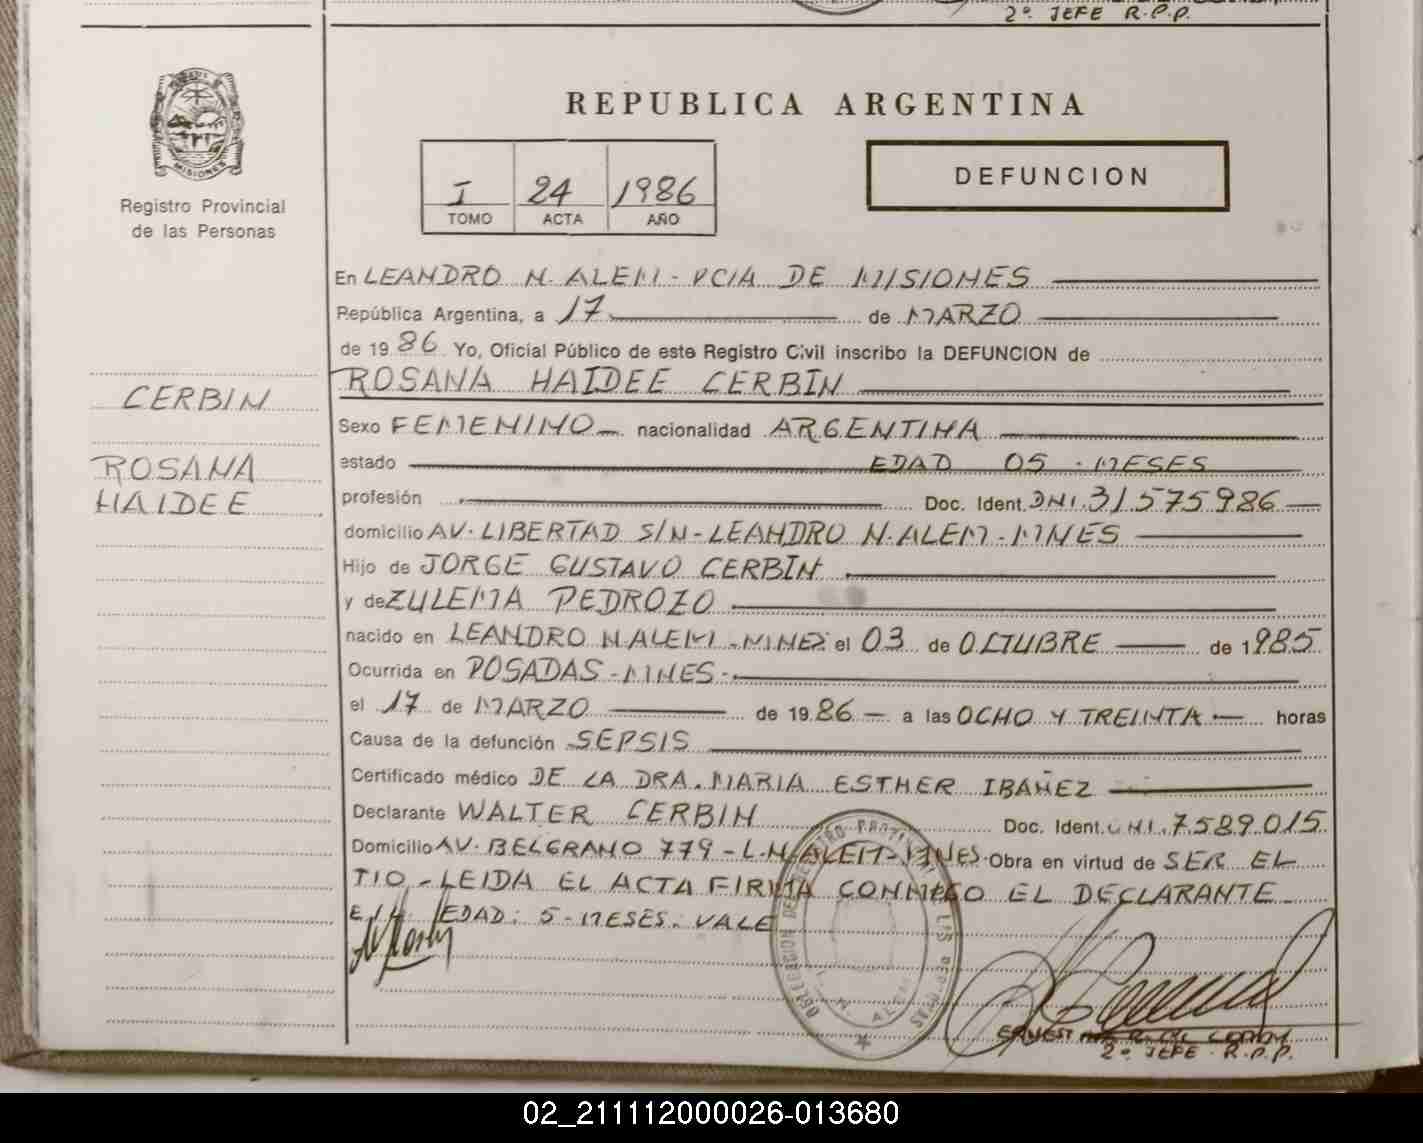 2º JEFE R.P.P.
MISIONES
Registro Provincial
de las Personas
REPUBLICA ARGENTINA
I 24 1986
TOMO ACTA AÑO
DEFUNCION
En LEANDRO N. ALEM - PCIA DE MISIONES
República Argentina, a 17 de MARZO
de 1986 Yo, Oficial Público de este Registro Civil inscribo la DEFUNCION de
ROSANA HAIDEE CERBIN
CERBIN
ROSANA
HAIDEE
Sexo FEMENINO nacionalidad ARGENTINA
estado EDAD 05 - MESES
profesión Doc. Ident. DNI. 31.575.986
domicilio AV. LIBERTAD S/N - LEANDRO N. ALEM - MNES
Hijo de JORGE GUSTAVO CERBIN
y de ZULEMA PEDROZO
nacido en LEANDRO N. ALEM - MNES el 03 de OCTUBRE de 1985
Ocurrida en POSADAS - MNES -
el 17 de MARZO de 1986 a las OCHO Y TREINTA horas
Causa de la defunción SEPSIS
Certificado médico DE LA DRA. MARIA ESTHER IBAÑEZ
Declarante WALTER CERBIN Doc. Ident. DNI. 7.589.015
Domicilio AV. BELGRANO 779 - L.N. ALEM - MNES. Obra en virtud de SER EL
TIO, - LEIDA EL ACTA FIRMA CONMIGO EL DECLARANTE
E/L EDAD: 5 - MESES. VALE
2º JEFE R.P.P.
02_211112000026-013680